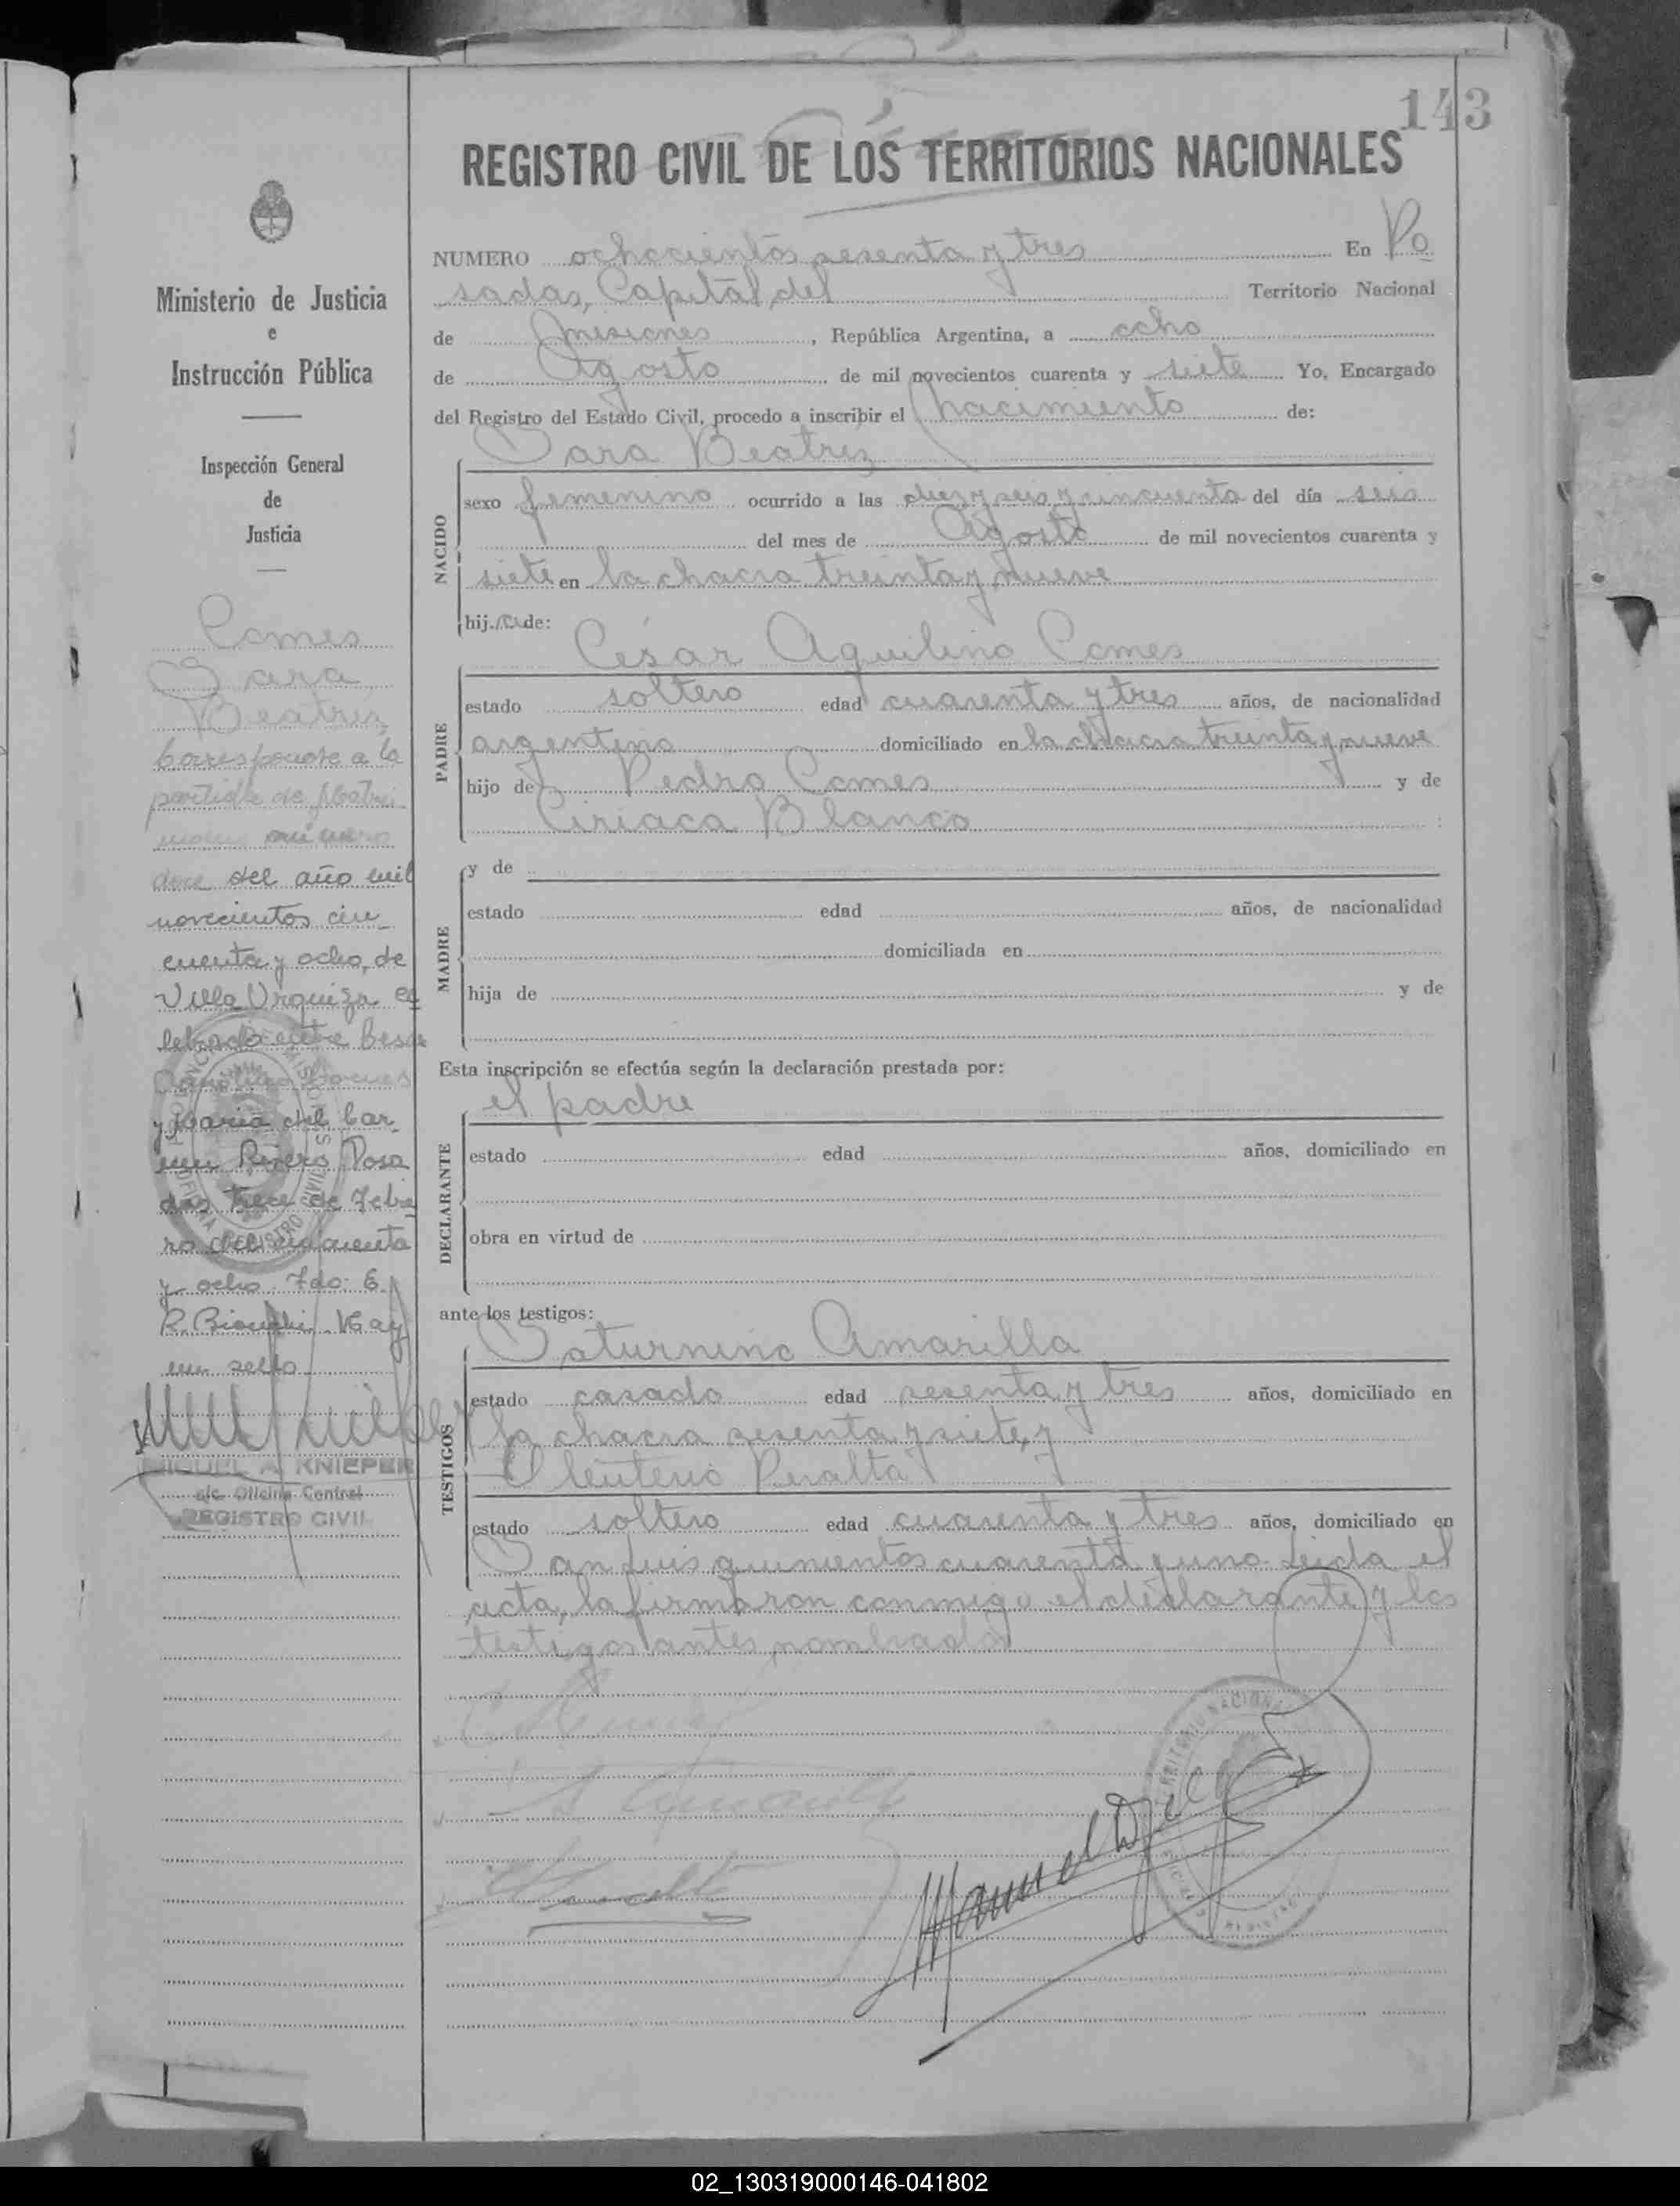 143
REGISTRO CIVIL DE LOS TERRITORIOS NACIONALES
NUMERO ochocientos sesenta y tres En Po
sadas, Capital del Territorio Nacional
de Misiones, República Argentina, a ocho
de Agosto de mil novecientos cuarenta y siete Yo, Encargado
del Registro del Estado Civil, procedo a inscribir el nacimiento de:
Sara Beatriz
NACIDO
sexo femenino ocurrido a las diez y seis y cincuenta del día seis
del mes de Agosto de mil novecientos cuarenta y
siete en la chacra treinta y nueve
hij a de:
César Aquilino Comes
PADRE
estado soltero edad cuarenta y tres años, de nacionalidad
argentino domiciliado en la chacra treinta y nueve
hijo de Pedro Comes y de
Ciriaca Blanco
MADRE
y de
estado edad años, de nacionalidad
domiciliada en
hija de y de
Esta inscripción se efectúa según la declaración prestada por:
el padre
DECLARANTE
estado edad años, domiciliado en
obra en virtud de
ante los testigos:
Saturnino Amarilla
TESTIGOS
estado casado edad sesenta y tres años, domiciliado en
la chacra sesenta y siete, y
Eleuterio Peralta
estado soltero edad cuarenta y tres años, domiciliado en
San Luis quinientos cuarenta y uno. Leida el
acta, la firmaron conmigo el declarante y los
testigos antes nombrados
Ministerio de Justicia
e
Instrucción Pública
Inspección General
de
Justicia
Comes
Sara
Beatriz
Corresponde a la
partida de Matri
monio número
doce del año mil
novecientos cin
cuenta y ocho, de
Villa Urquiza ce
lebrado entre Cesar
Aquilino Comes
y Maria del Car
men Rivero Posa
das trece de Febre
ro del cincuenta
y ocho. Fdo: E.
R. Bianchi. Hay
un sello
MIGUEL A. KNIEPER
a/c. Oficina Central
REGISTRO CIVIL
02_130319000146-041802